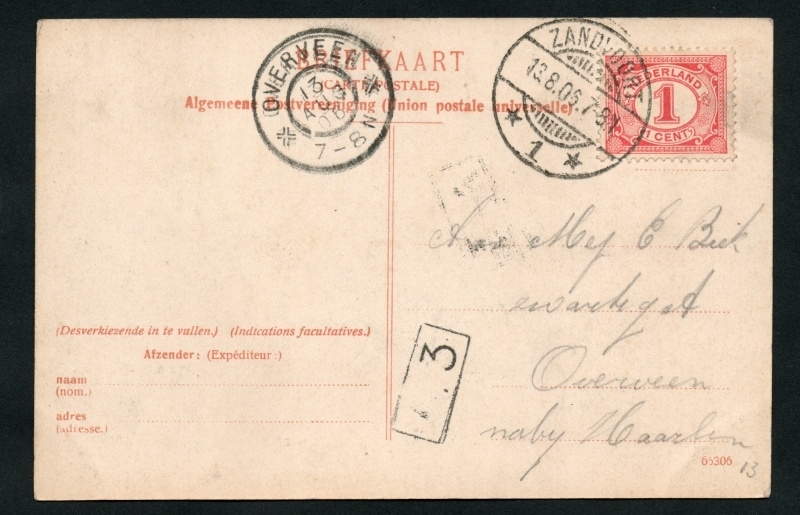 BRIEFKAART
(CARTE POSTALE)
Algemeene Postvereeniging (Union postale universelle)
OVERVEEN
13
AUG
06
7-8N
ZANDVOORT
13.8.06.7-8N
1
NEDERLAND
1
1 CENT
Aan Mej C Beek
Overveen
naby Haarlem
3
(Desverkiezende in te vullen.) (Indications facultatives.)
Afzender: (Expéditeur:)
naam
(nom.)
adres
(adresse.)
65306
13